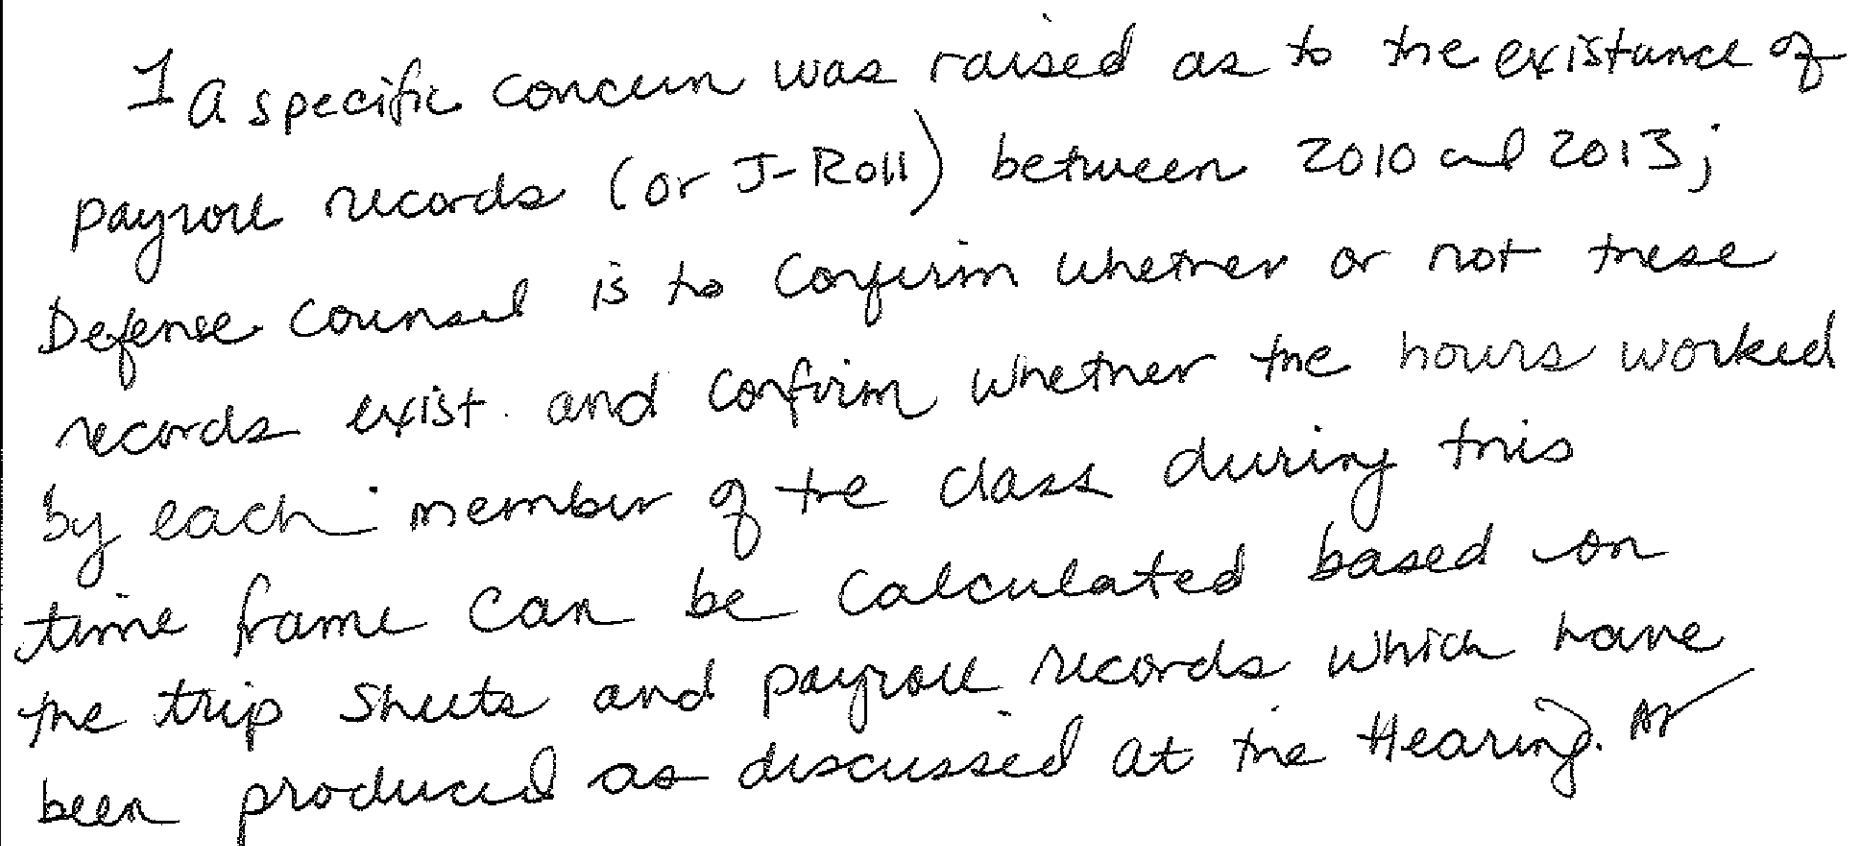 1 A specific concern was raised as to the existance of
payroll records (or J-Roll) between 2010 and 2013;
Defense counsel is to confirm whether or not these
records exist and confirm whether the hours worked
by each member of the class during this
time frame can be calculated based on
the trip sheets and payroll records which have
been produced as discussed at the Hearing.